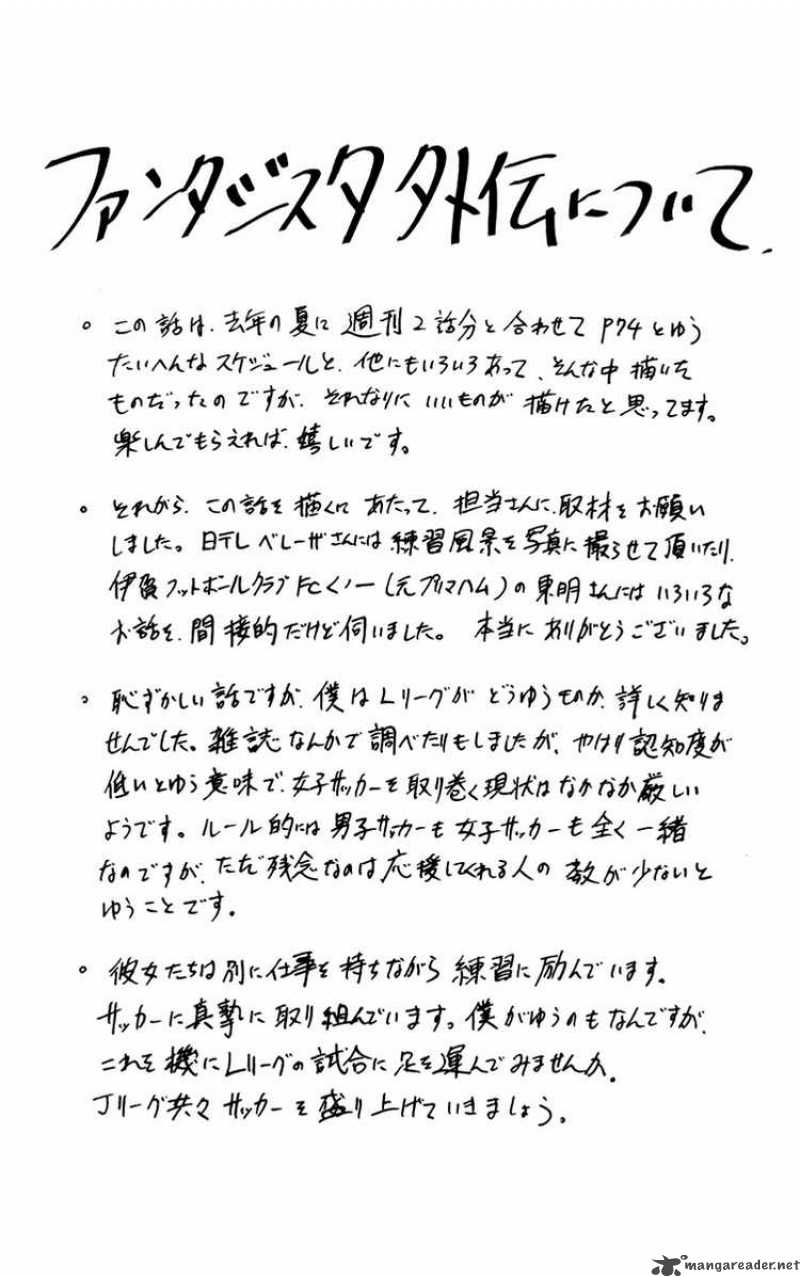 ファンタジスタ外伝について.
。この話は、去年の夏に週刊2話分と合わせてP74とゆう
たいへんなスケジュールと、他にもいろいろあって、そんな中描いた
ものだったのですが、それなりにいいものが描けたと思ってます。
楽しんでもらえれば、嬉しいです。
。それから、この話を描くにあたって、担当さんに、取材をお願い
しました。日テレベレーザさんには練習風景を写真に撮らせて頂いたり、
伊賀フットボールクラブFCくノ一(元プリマハム)の東明さんにはいろいろな
お話を、間接的だけど伺いました。本当にありがとうございました。
。恥ずかしい話ですが、僕はLリーグがどうゆうものか、詳しく知りま
せんでした。雑誌なんかで調べたりもしましたが、やはり認知度が
低いとゆう意味で、女子サッカーを取り巻く現状はなかなか厳しい
ようです。ルール的には男子サッカーも女子サッカーも全く一緒
なのですが、ただ残念なのは応援してくれる人の数が少ないと
ゆうことです。
。彼女たちは別に仕事を持ちながら練習に励んでいます。
サッカーに真摯に取り組んでいます。僕がゆうのもなんですが、
これを機にLリーグの試合に足を運んでみませんか.
Jリーグ共々サッカーを盛り上げていきましょう。
mangareader.net